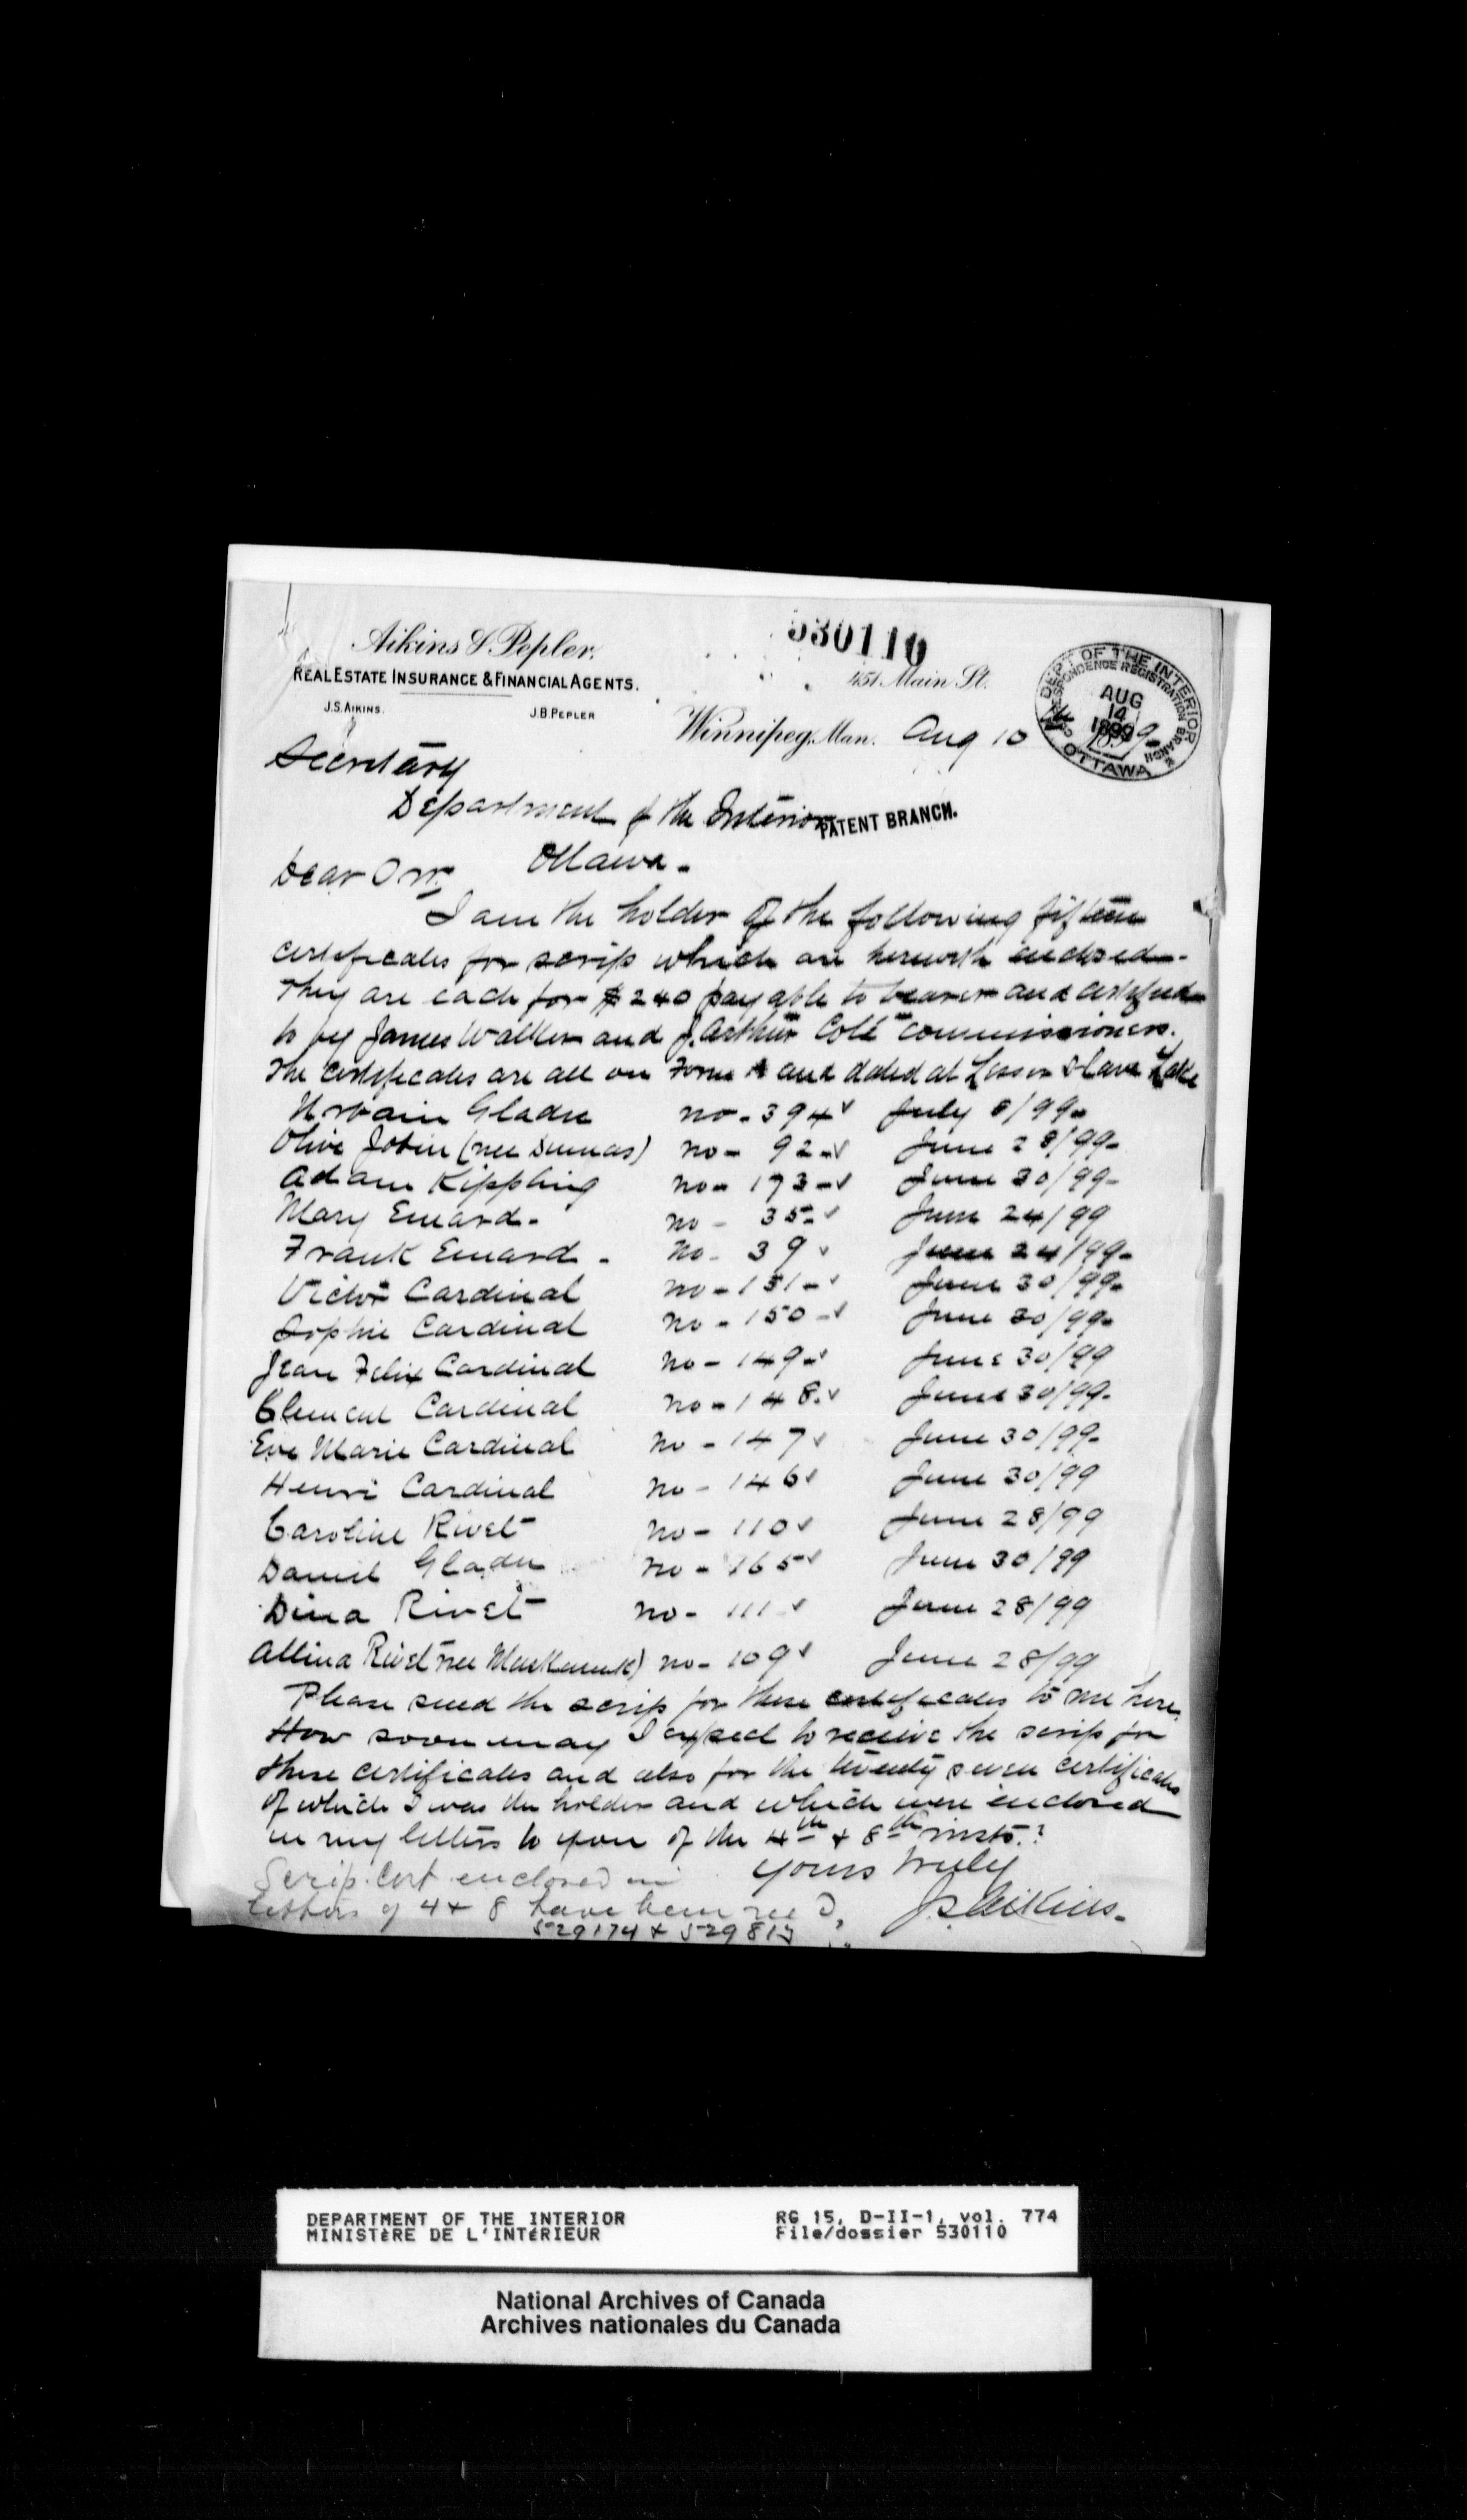 530110
Aikins & Pepler.
REAL ESTATE INSURANCE & FINANCIAL AGENTS.
451 Main St.
J.S. AIKINS. J.B. PEPLER
DEPT OF THE INTERIOR
CORRESPONDENCE REGISTRATION BRANCH
AUG
14
1899
OTTAWA
Winnipeg, Man. Aug 10 1899-
Secretary
Department of the Interior
PATENT BRANCH.
Ottawa -
Dear Sir
I am the holder of the following fifteen
certificates for scrip which are herewith enclosed -
They are each for $240 payable to bearer and certified
to by James Walker and J. Arthur Coté commissioners.
The certificates are all on Form A and dated at Lesser Slave Lake
Urbain Gladu no - 394 July 8/99 -
Olive Jobin (nee Dumas) no - 92 - June 28/99 -
Adam Kippling no - 173 - June 30/99 -
Mary Emard - no - 35 - June 24/99
Frank Emard - no - 39 June 24/99 -
Victor Cardinal no - 151 - June 30/99 -
Sophie Cardinal no - 150 - June 30/99 -
Jean Felix Cardinal no - 149 - June 30/99
Clement Cardinal no - 148 . June 30/99 -
Eve Marie Cardinal no - 147 June 30/99 -
Henri Cardinal no - 146 June 30/99
Caroline Rivet no - 110 June 28/99
Daniel Gladu no - 165 June 30/99
Dina Rivet no - 111 June 28/99
Allina Rivet nee ) no - 109 June 28/99
Please send the scrip for these certificates to me here.
How soon may I expect to receive the scrip for
these certificates and also for the twenty seven certificates
of which I was the holder and which were enclosed
in my letters to you of the 4th & 8th insts.?
Yours truly
J.S. Aikins -
Scrip Cert enclosed in
letters of 4 & 8 have been rec'd,
529174 & 52981
DEPARTMENT OF THE INTERIOR RG 15, D-II-1, vol. 774
MINISTÈRE DE L'INTÉRIEUR File/dossier 530110
National Archives of Canada
Archives nationales du Canada